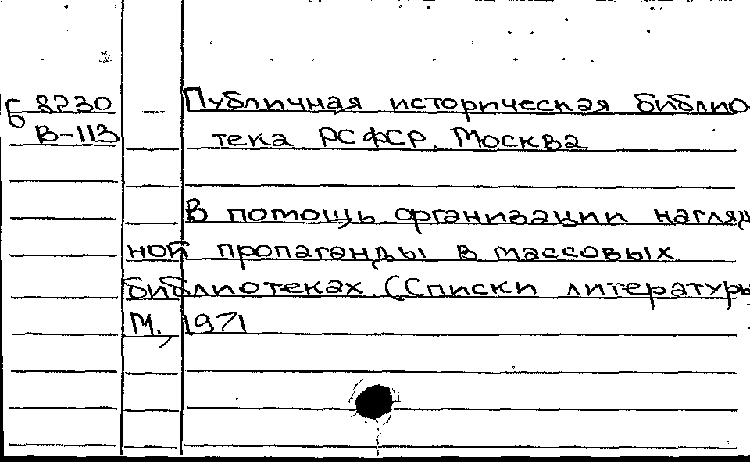 Б 8230 Публичная историческая библио
В-113 тека РСФСР. Москва
В помощь организации нагляд
ной пропаганды в массовых
библиотеках. (Списки литературы
М., 1971